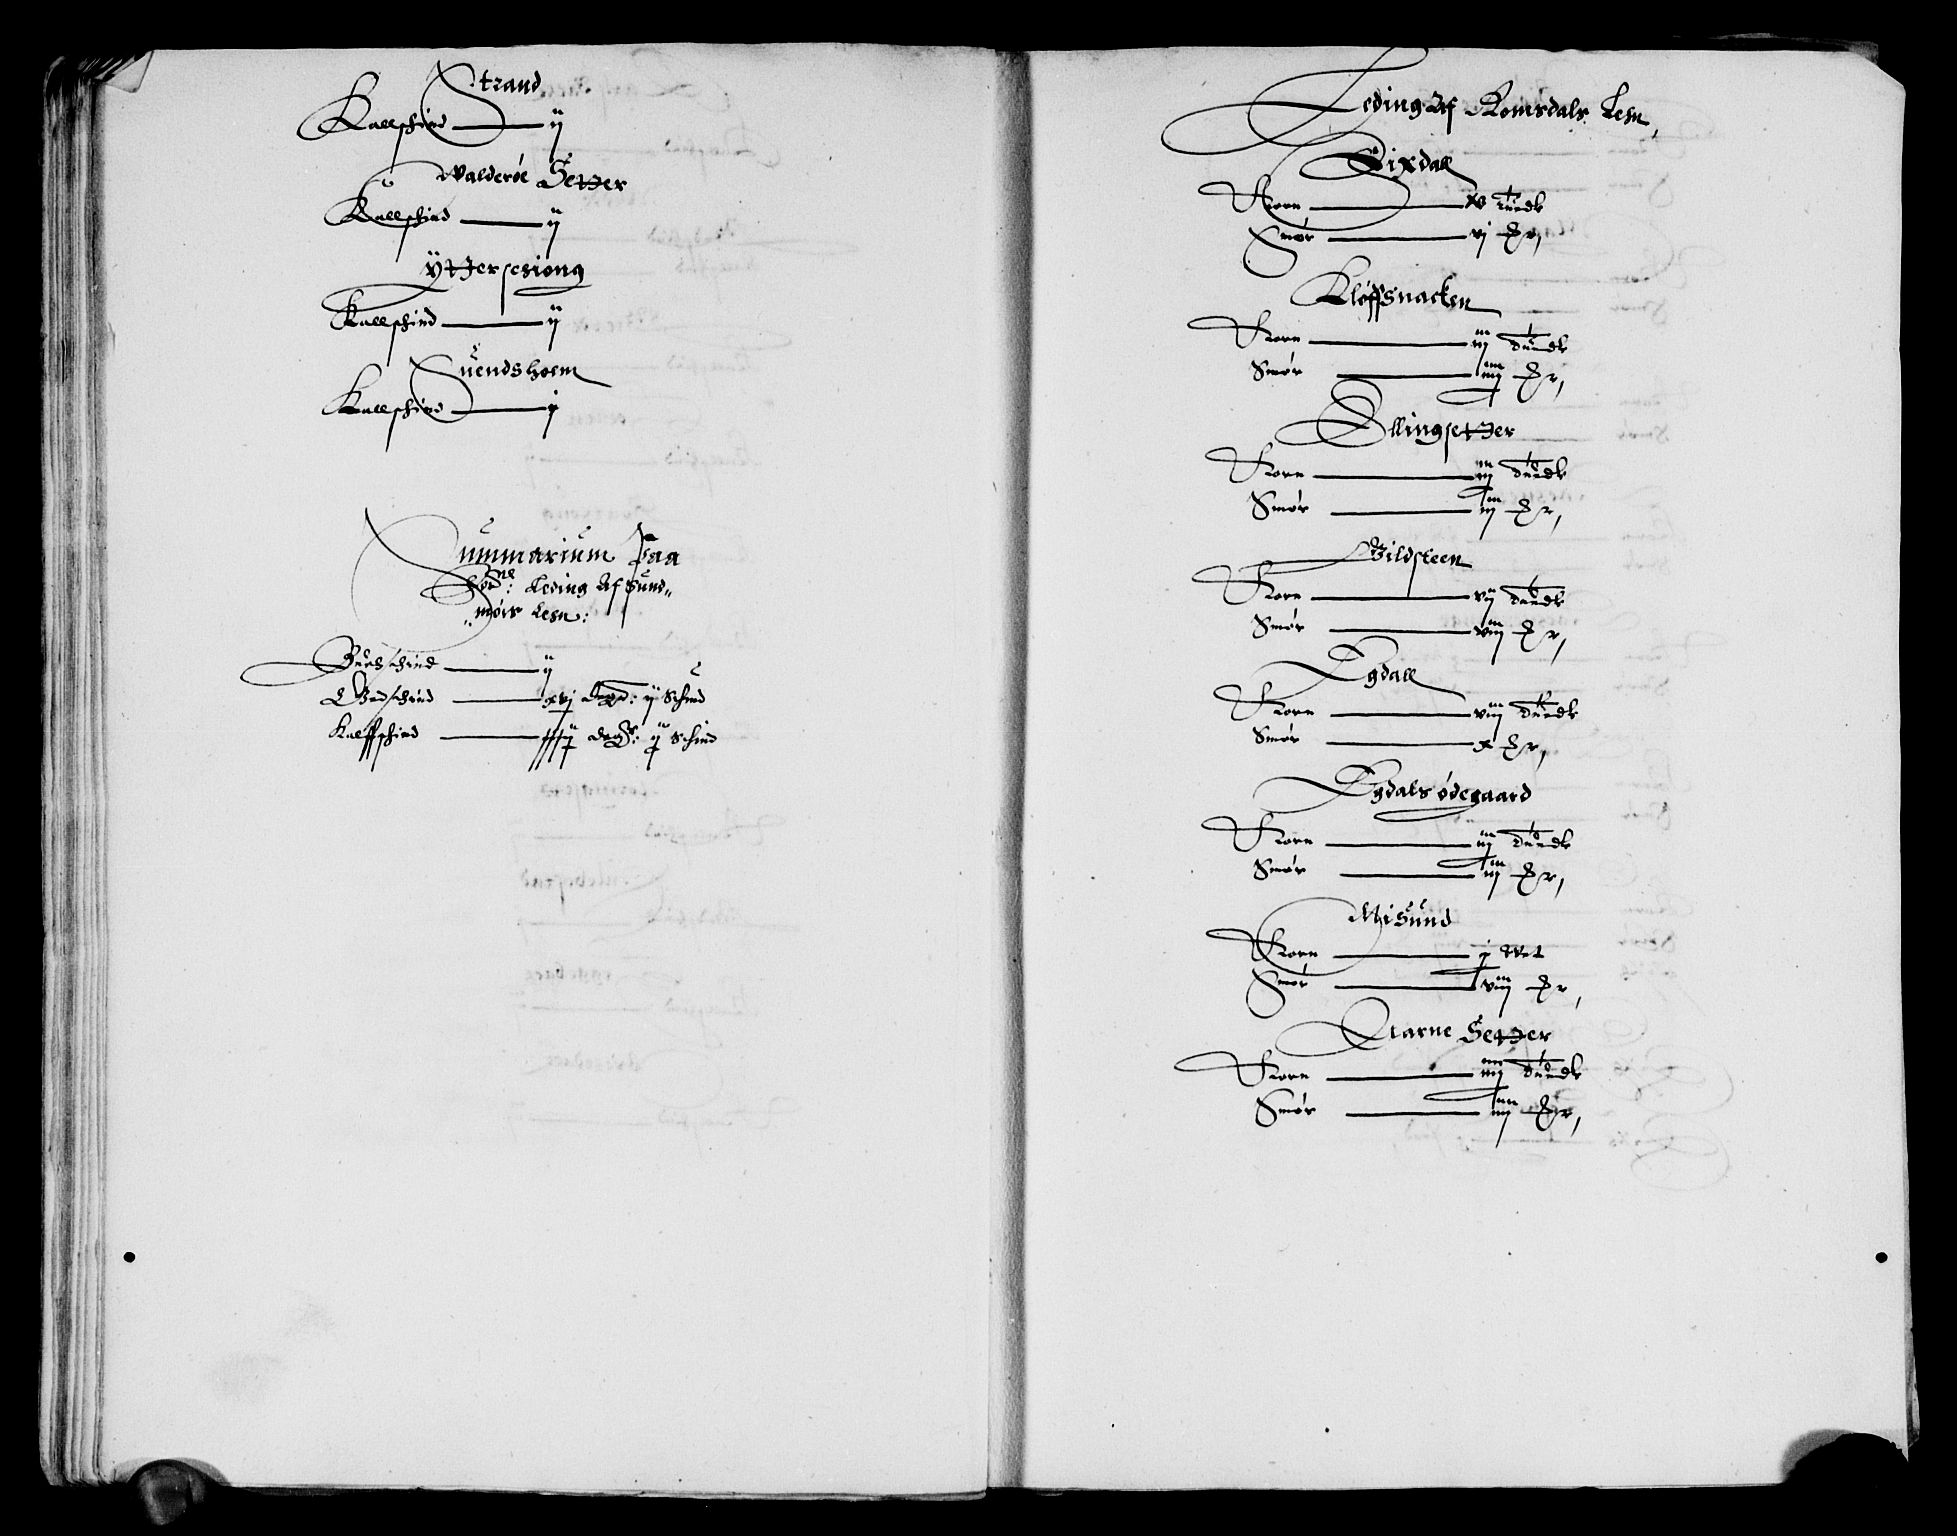 Strand
Kallschind — ij
Walderöe Setter
Kallschind — ij
Ÿttersesiong
Kallschind — ij
Suendsholm
Kallschind — j
Summarium Paa
Leding Af Sund„
„mørs Lehn:
Buchschind — ij
Giedschind — xvj ij Schind
Kalffschind — ij Schind
Leding Af Romsdals Lehn,
Dixdall
Korn — xv
Smør — vj
Kløffsnacken
Korn — iij
Smør — iiij
Ellingsetter
Korn — iij
Smør — iij
Gildsteen
Korn — vij
Smør — viij
Egdall
Korn — viij
Smør — x
Egdals ødegaard
Korn — iij
Smør — iij
Misund
Korn — j Wet
Smør — viij
Starne Setter
Korn — iiij
Smør — iiij